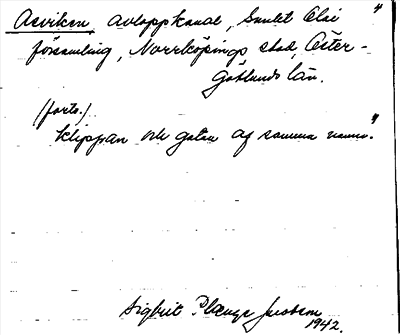 Asviken, avloppskanal, Sankt Olai "
församling, Norrköpings stad, Öster-
götlands län.
(forts.)
Klippan och gatan af samma namn."
Sigbrit Plænge Jacobson
1942.